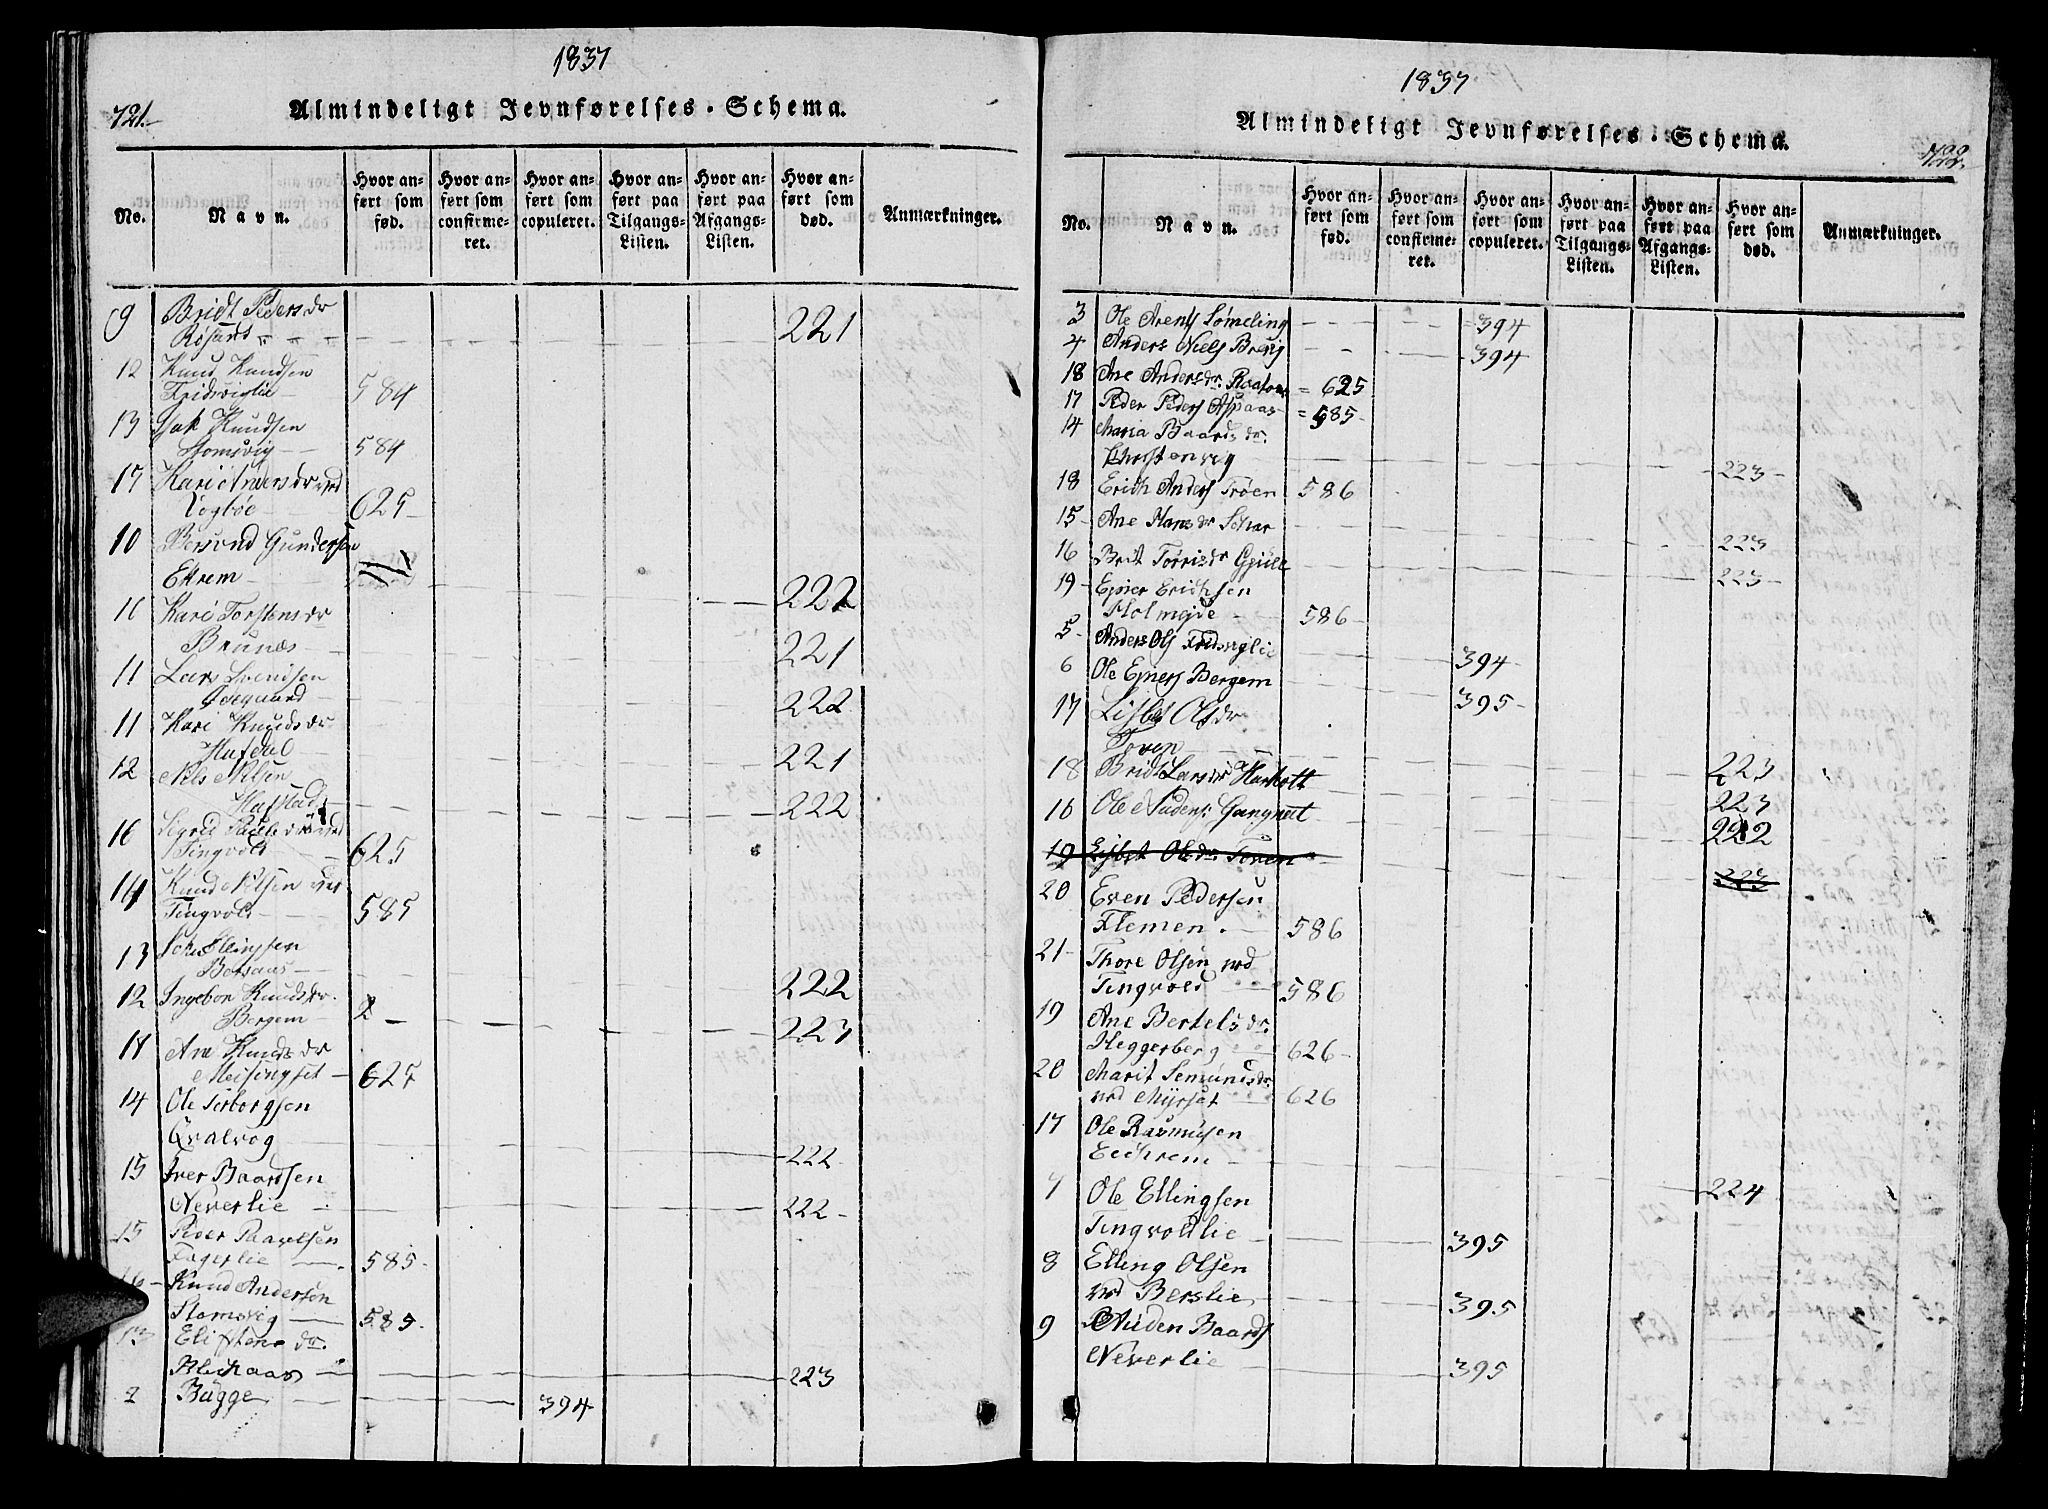 1837
721.
Almindeligt Jevnførelses-Schema.
No.
Navn.
Hvor an-
ført som
fød.
Hvor an-
ført som
confirme-
ret.
Hvor an-
ført som
copuleret.
Hvor an-
ført paa
Tilgangs-
Listen.
Hvor an-
ført paa
Afgangs-
Listen.
Hvor an-
ført som
død.
Anmærkninger.
9 Bridt Peders dr
Røsand 221
12 Knud Knudsen
Fridsviglie 584
13 Isak Knudsen
Stomsvig 584
17 Kari Anders dr ved
Vogbøe 625
10 Bersvend Gundersen
Ekrem 222
10 Kari Torstens dr
Brunæs 221
11 Lars Svendsen
222
11 Kari Knuds dr
Hafdal 221
12 Nils Nilsen
Hafstad 222
16 Sigrid dr ved
Tingvold 625
14 Knud Nilsen ved
Tingvold 585
13 Ellingsen
222
12 Ingebor Knuds dr.
Bergem 2 223
17 Ane Knuds dr
Meisingset 625
14 Ole Torborgsen
Qvalvog 222
15 Iver Baardsen
Neverlie 222
15 Peder Paavelsen
Fagerlie 585
16 Knud Andersen
Stomsvig 585
13
223
2 Bugge 394
1837
Almindeligt Jevnførelses-Schema.
722.
No.
Navn.
Hvor an-
ført som
fød.
Hvor an-
ført som
confirme-
ret.
Hvor an-
ført som
copuleret.
Hvor an-
ført paa
Tilgangs-
Listen.
Hvor an-
ført paa
Afgangs-
Listen.
Hvor an-
ført som
død.
Anmærkninger.
3 Ole Arents Sømeling 394
4 Anders Niels Brevig 394
18 Ane Anders dr. 625
17 Peder Peders Aspaas 585
14 Maria Baards dr.
223
18 Erich Anders Trøen 586
15 Ane Hans dr 223
16 Brit Torris dr 223
19 Ejner Erichsen
Holmejde 586
5 Anders Ols Fridsviglie 394
6 Ole Ejners Bergem 395
17 Lisbet Ols dr
Toven 223
18 Bridt Lars dr 223
16 Ole 222
19 Lisbet Ols dr. Toven 223
20 Even Pedersen
Flemen. 586
21 Thore Olsen ved
Tingvold 586
19 Ane Bertels dr.
Heggerberg 626
20 Marit Semunds dr.
ved Myrset 626
17 Ole Rasmusen
Eedkrem 224
7 Ole Ellingsen
Tingvoldlie 395
8 Elling Olsen
ved Berslie 395
9 Auden Baards
Neverlie 395